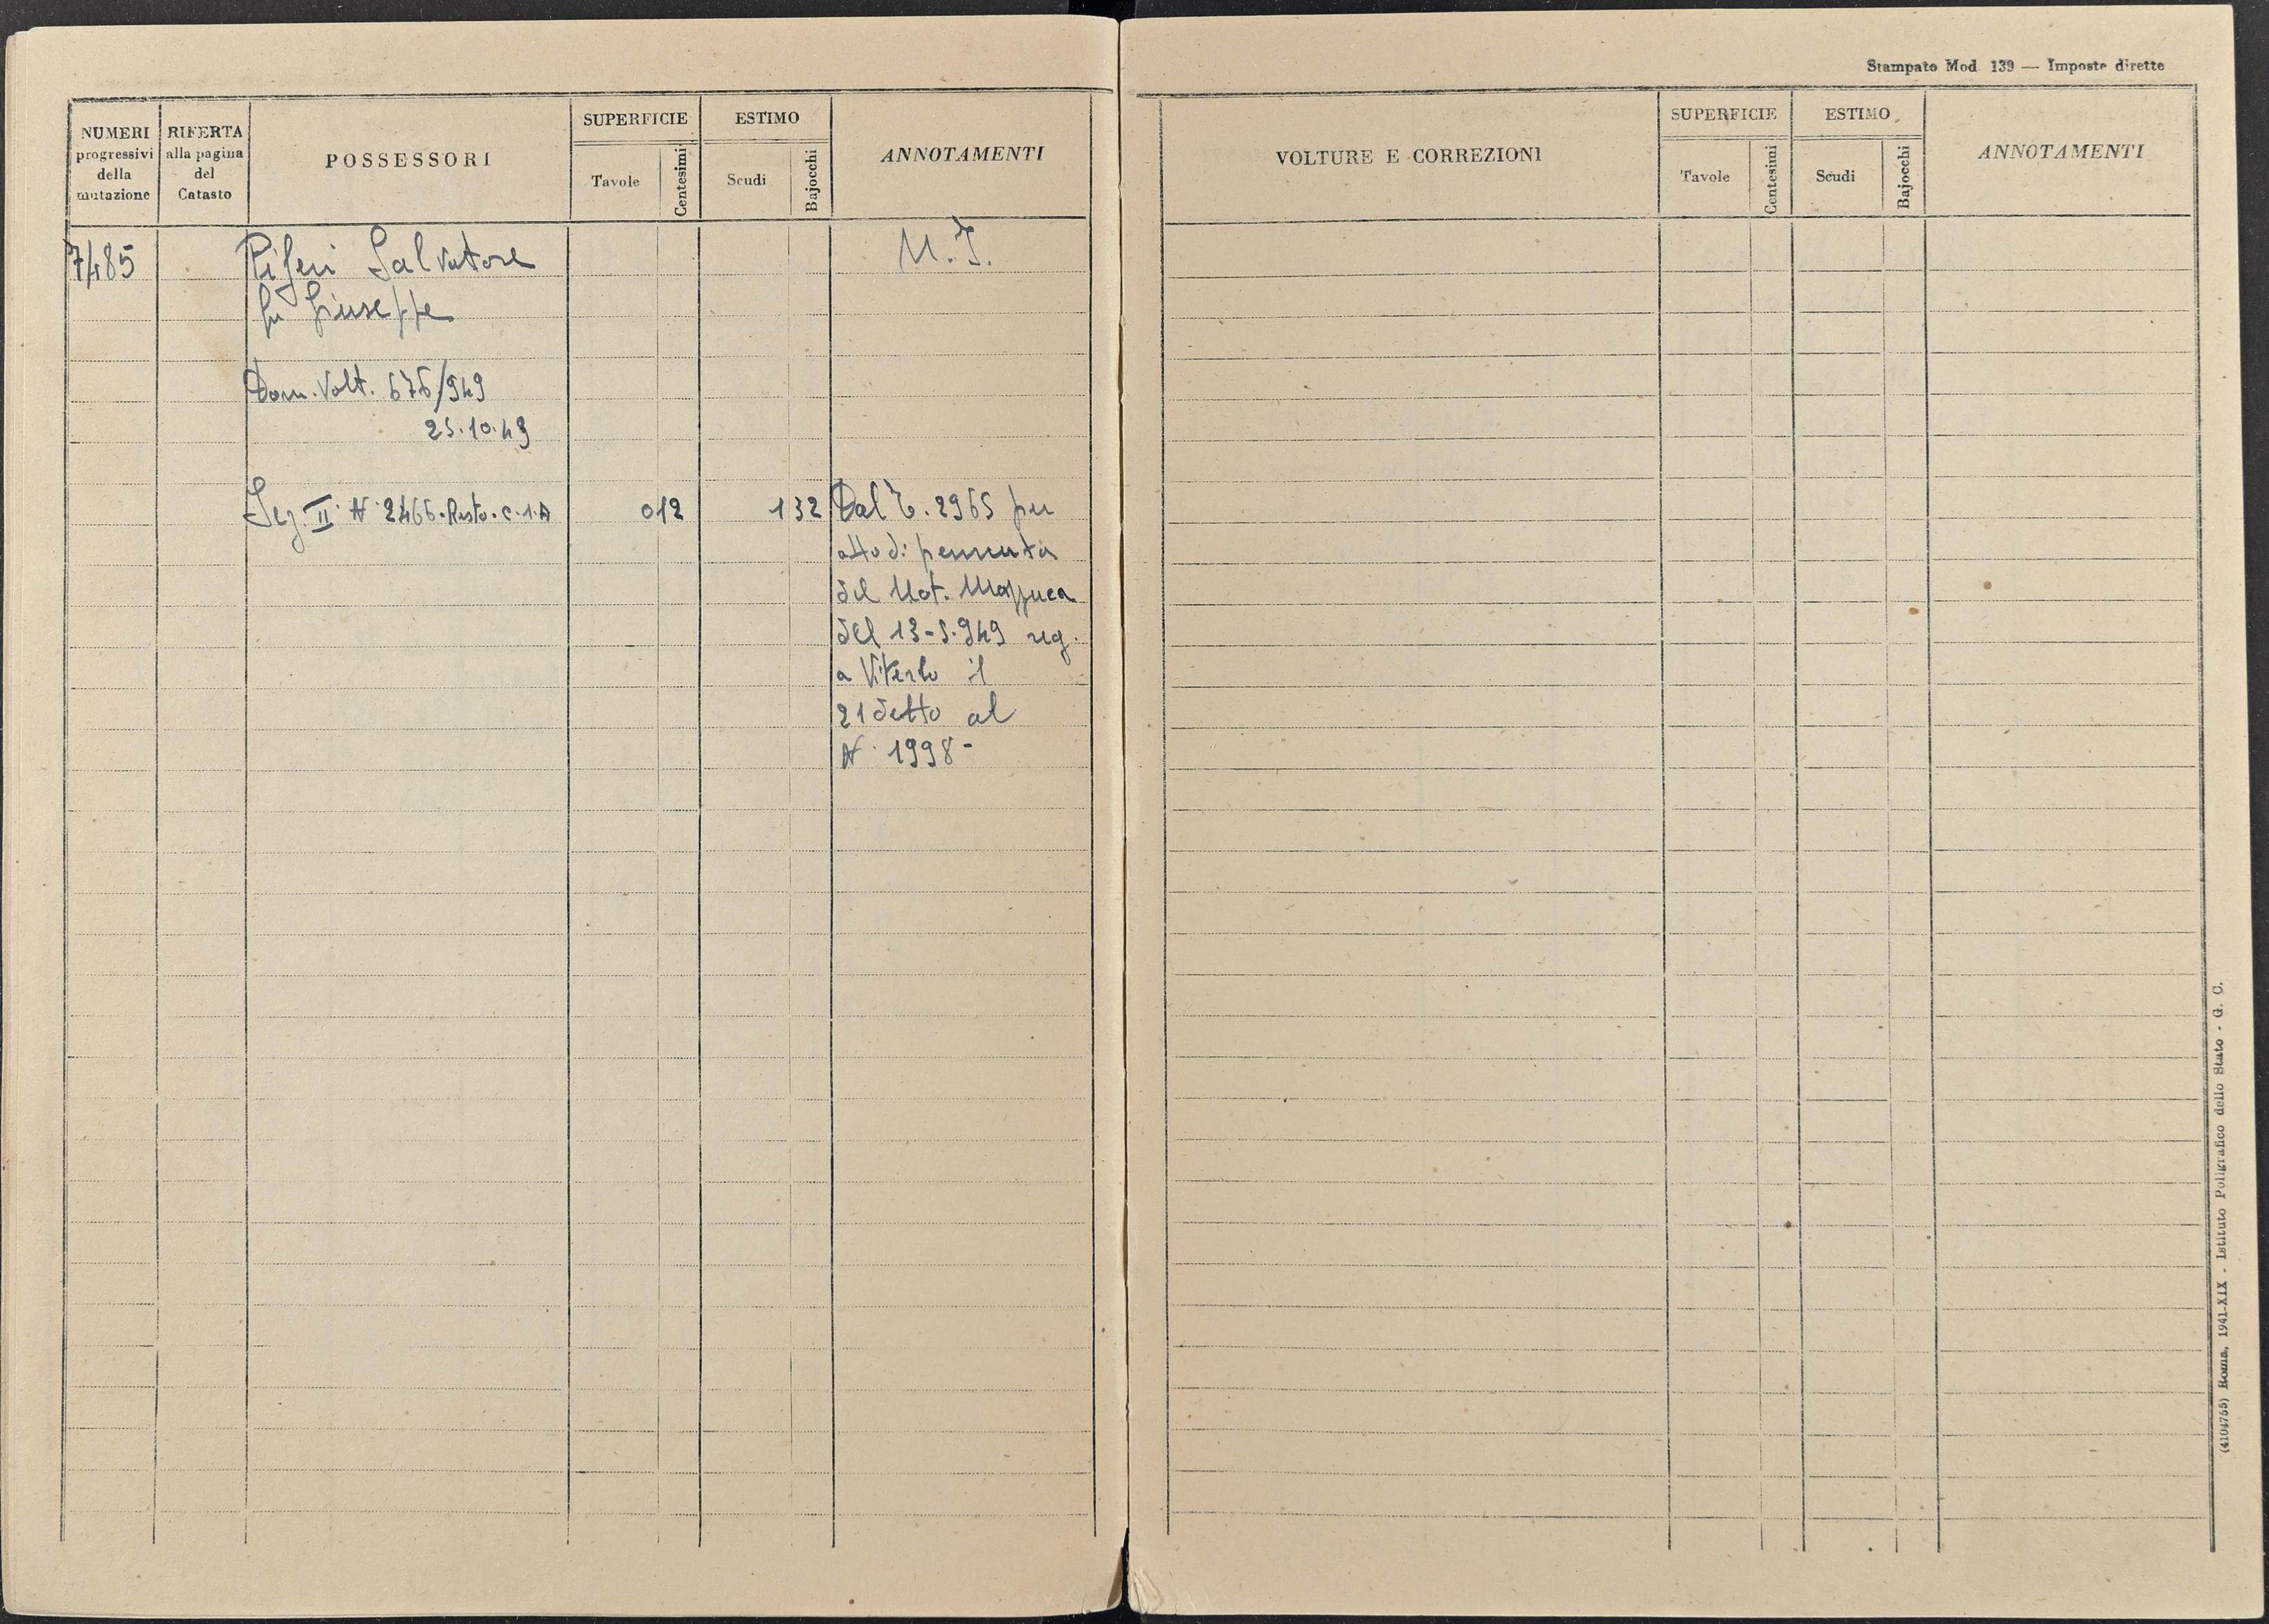 Stampato Mod 139 — Imposte dirette
NUMERI progressivi della mutazione
RIFERTA alla pagina del Catasto
POSSESSORI
SUPERFICIE
Tavole
Centesimi
ESTIMO
Scudi
Bajocchi
ANNOTAMENTI
VOLTURE E CORREZIONI
SUPERFICIE
Tavole
Centesimi
ESTIMO
Scudi
Bajocchi
ANNOTAMENTI
7485 Piferi Salvatore
fu Giuseppe
Dom. Volt. 676/949
25.10.49
Sez. II N. 2466. Resto. C. 1. A 012 132 Dal T. 2965 per
atto di permuta
del Not. Mazzuca
del 13-5-949 reg.
a Viterbo il
21 detto al
N. 1998-
(4104755) Roma, 1941-XIX - Istituto Poligrafico dello Stato - G. C.